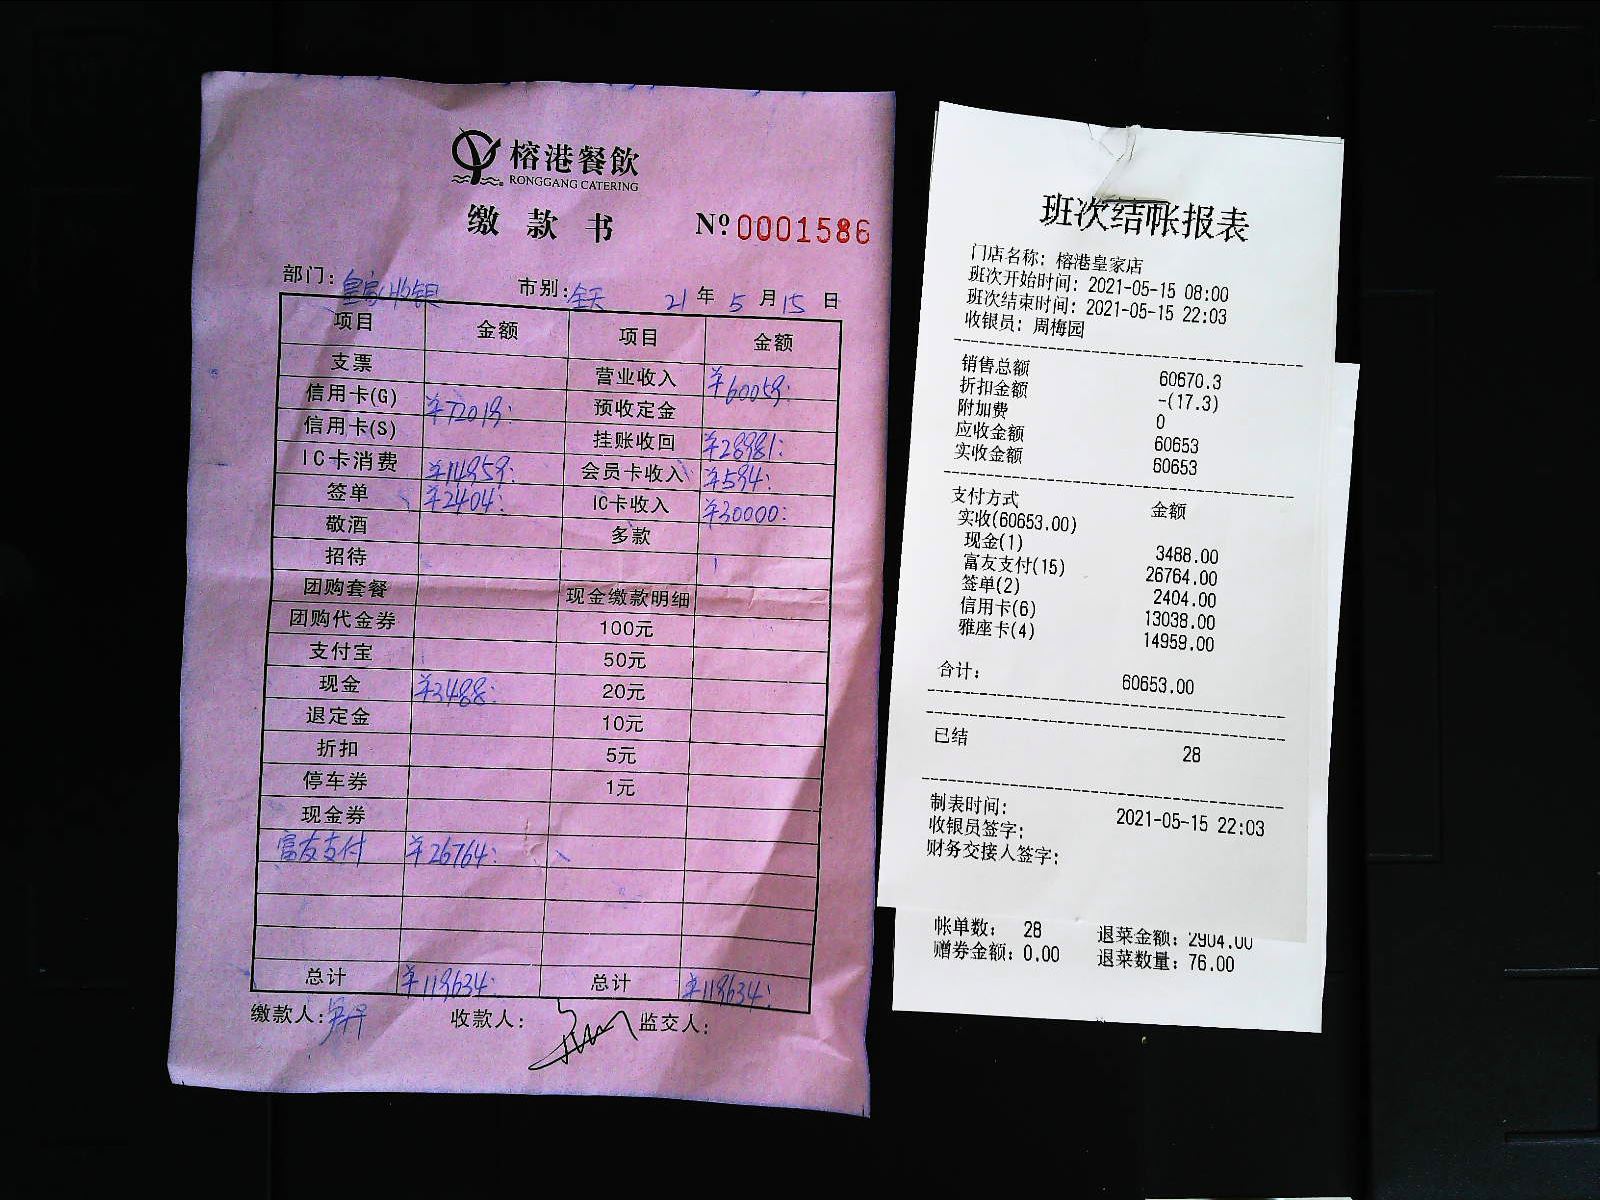 榕港餐飲
RONGGANG CATERING
缴款书 Nº 0001586
部门: 皇家收银 市别: 全天 21年5月15日
项目 金额 项目 金额
支票 营业收入 ¥60059:
信用卡(G) ¥72019: 预收定金
信用卡(S) 挂账收回 ¥28981:
IC卡消费 ¥14959: 会员卡收入 ¥594:
签单 ¥2404: IC卡收入 ¥30000:
敬酒 多款
招待
团购套餐 现金缴款明细
团购代金券 100元
支付宝 50元
现金 ¥3488: 20元
退定金 10元
折扣 5元
停车券 1元
现金券
富友支付 ¥26764:
总计 ¥119634: 总计 ¥119634:
缴款人: 收款人: 监交人:
班次结帐报表
门店名称: 榕港皇家店
班次开始时间: 2021-05-15 08:00
班次结束时间: 2021-05-15 22:03
收银员: 周梅园
销售总额 60670.3
折扣金额 -(17.3)
附加费 0
应收金额 60653
实收金额 60653
支付方式 金额
实收(60653.00)
现金(1) 3488.00
富友支付(15) 26764.00
签单(2) 2404.00
信用卡(6) 13038.00
雅座卡(4) 14959.00
合计: 60653.00
已结 28
制表时间: 2021-05-15 22:03
收银员签字:
财务交接人签字:
帐单数: 28 退菜金额: 2904.00
赠券金额: 0.00 退菜数量: 76.00